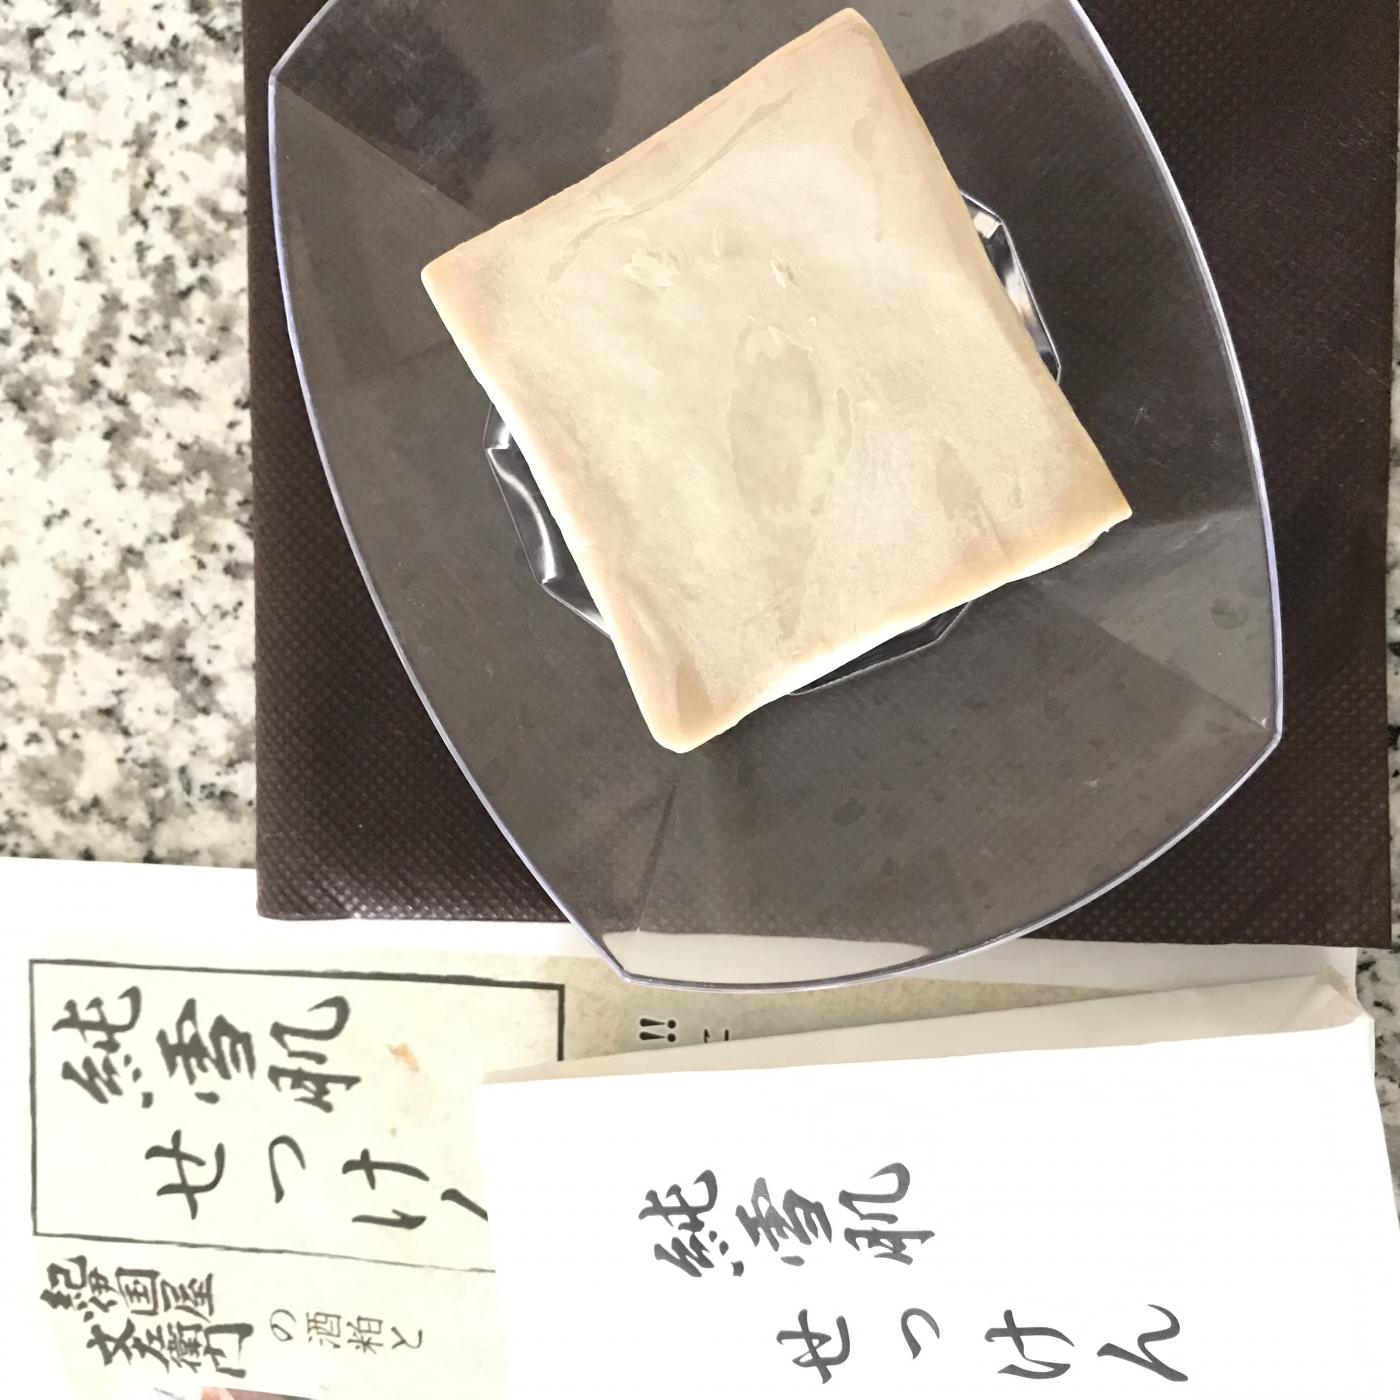 純雪肌
せっけ
紀伊国屋
文左衛門
の酒粕と
!!
純雪肌
せっけん